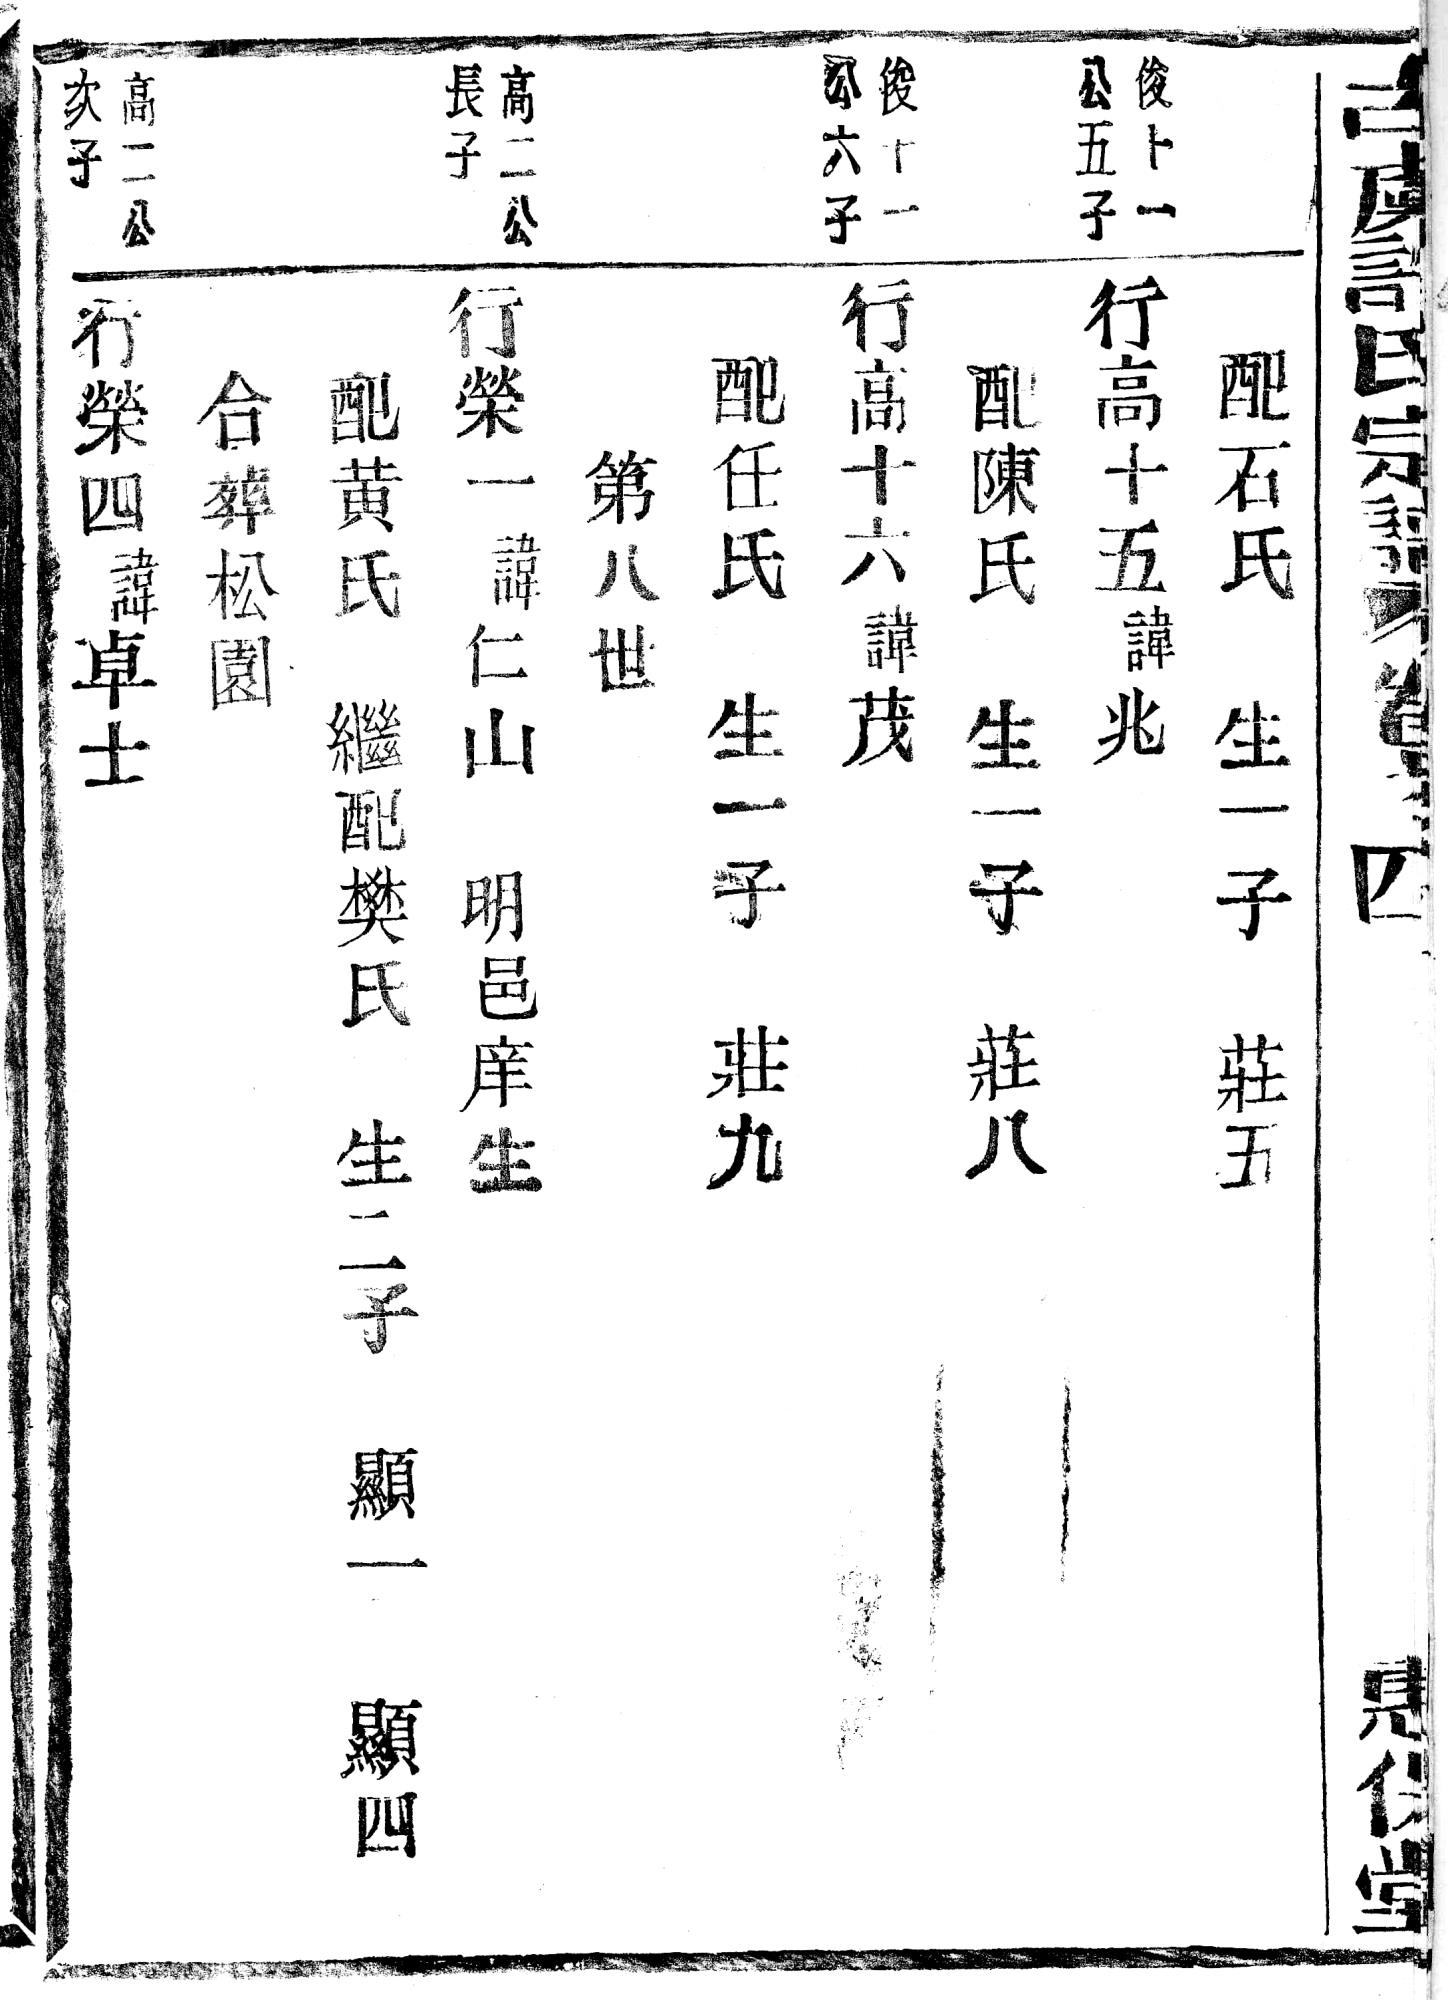 古虞許氏宗譜 卷 四
配石氏 生一子 莊五
俊十一
公五子
行高十五諱兆
配陳氏 生一子 莊八
俊十一
公六子
行高十六諱茂
配任氏 生一子 莊九
第八世
高二公
長子
行榮一諱仁山 明邑庠生
配黃氏 繼配樊氏 生二子 顯一 顯四
合葬松園
高二公
次子
行榮四諱卓士